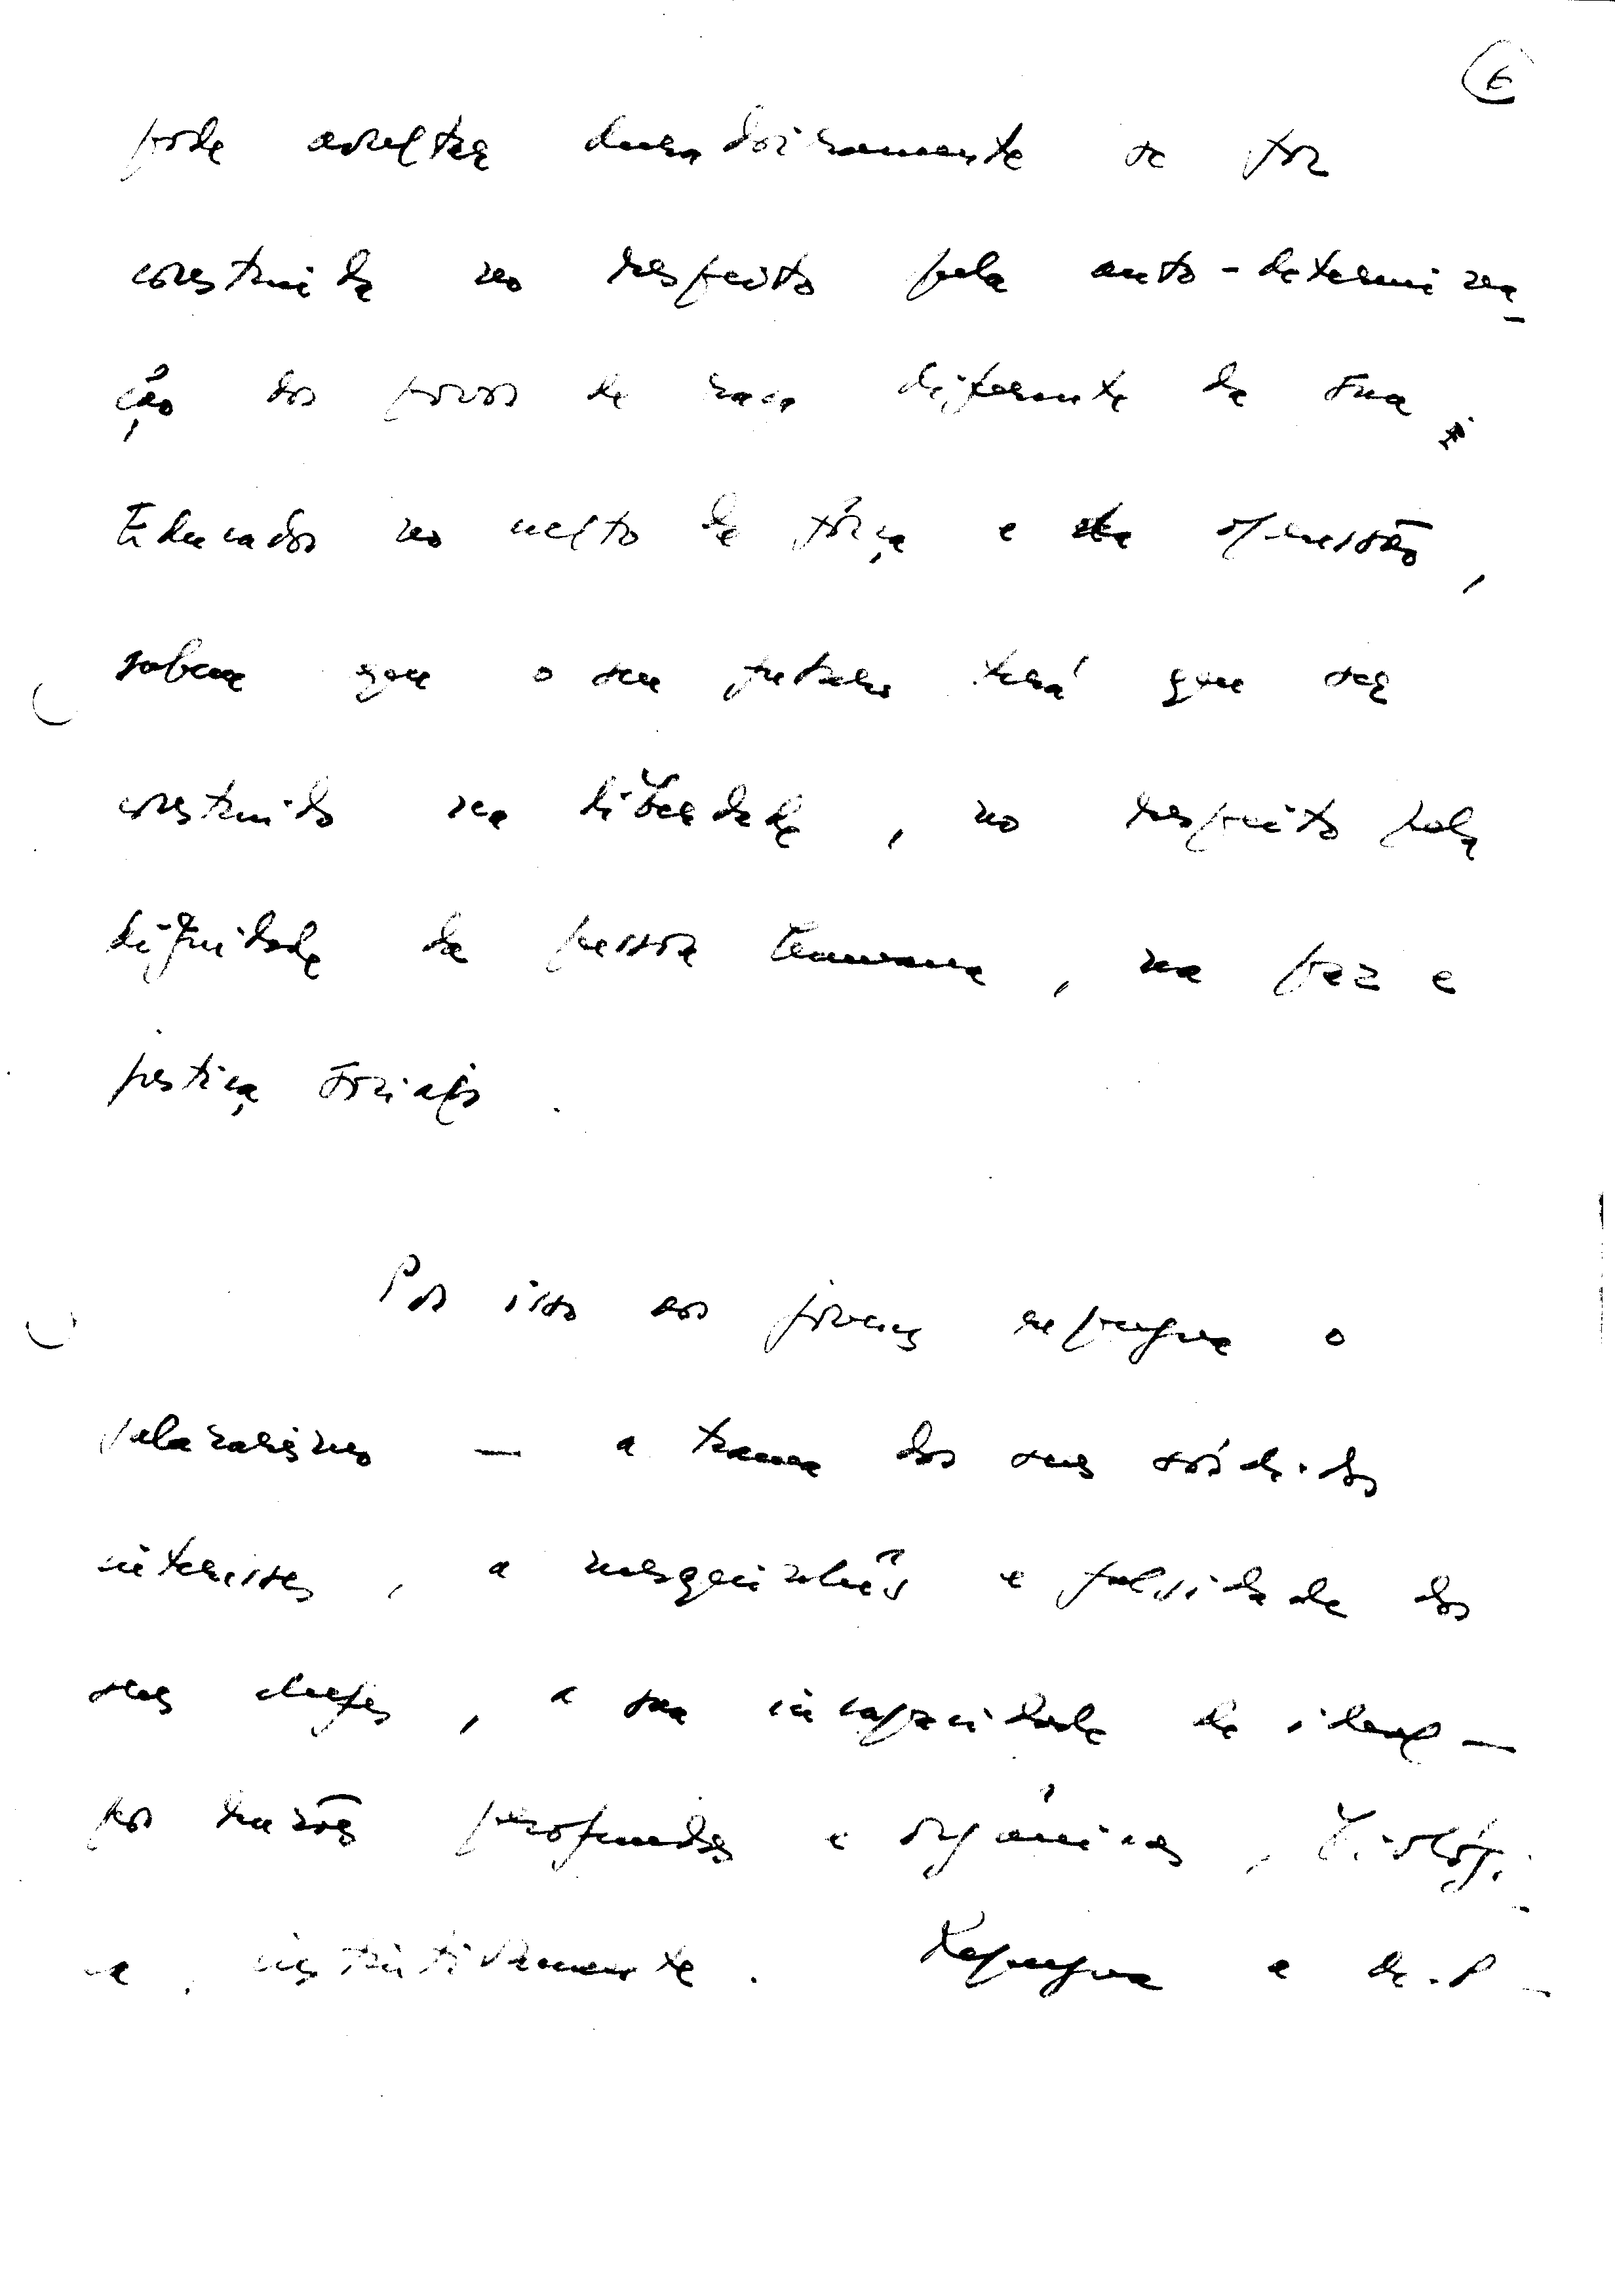 6
pode acestar duradoiramente se for
construida no respeito pela auto-determina-
ção dos povos de raça diferente da sua;
Educados no culto da fôrça e da opressão,
sabem que o seu futuro terá que ser
construido na liberdade, no respeito pela
dignidade da pessoa humana, na paz e
justiça sociais.
Por isso aos jovens repugna o
salazarismo — a trama dos seus sórdidos
interesses, a mesquinhês e falsidade dos
seus chefes, a sua incapacidade de ideal —
por razões profundas e orgânicas, biológi-
ca, instintivamente. Repugna a